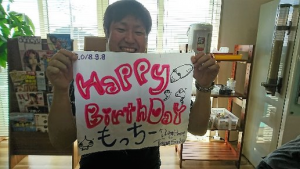 2018.9.8
HAPPY
BirthDAY
もっちー